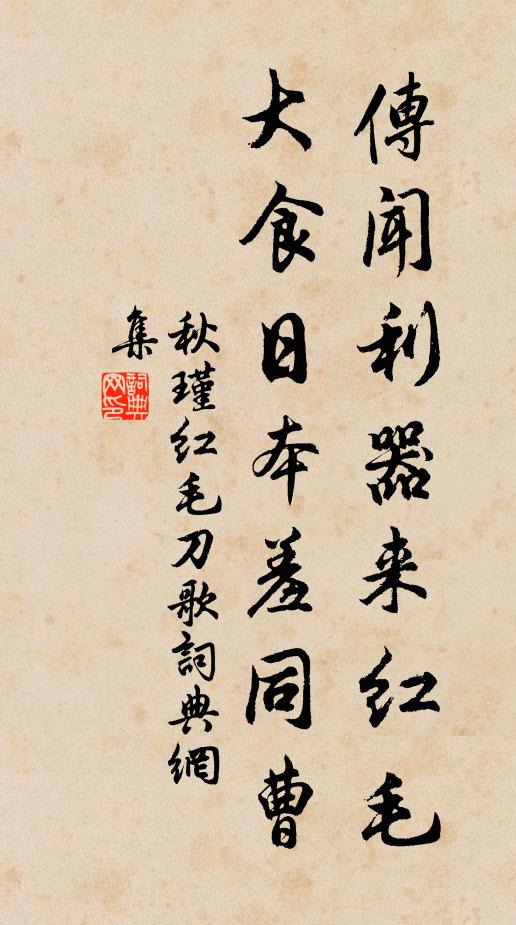 傳聞利器来紅毛
大食日本羞同曹
秋瑾紅毛刀歌詞典網
集
詞典
網印